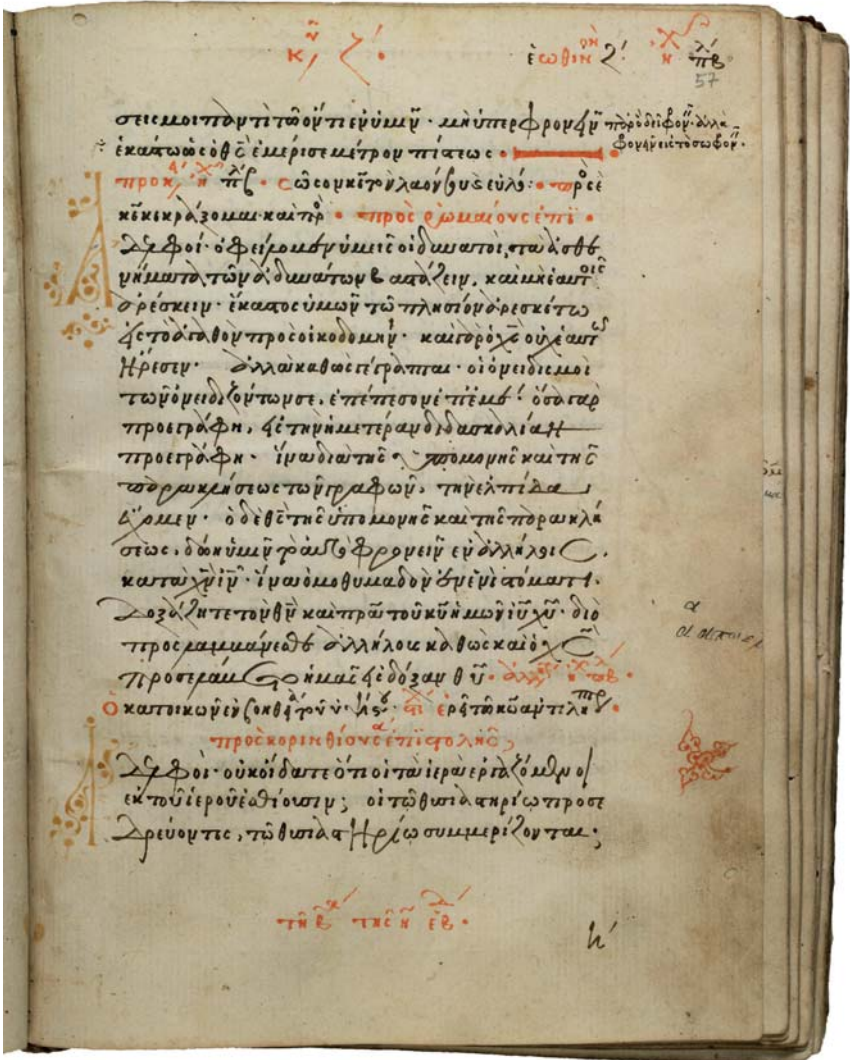 ἑωθινὸν
57
σεισμοι παντὶ τῶ ὄντι ἐν ὑμῖν · μὴ ὑπερφρονεῖν παρ' ὃ δεῖ φρονεῖν · ἀλλὰ
φρονεῖν εἰς τὸ σωφρονεῖν ·
ἑκάστω ὡς ὁ θς ἐμέρισε μέτρον πίστεως ·
σῶσον κε τὸν λαόν σου · πρὸς σὲ
κε κεκράξομαι · πρὸς ρωμαίους ἐπι
Ἀδελφοί · ὀφείλομεν ὑμεῖς οἱ δυνατοὶ, τὰ ἀσθε
νήματα τῶν ἀδυνάτων βαστάζειν, καὶ μὴ ἑαυτοῖς
ἀρέσκειν · ἕκαστος ὑμῶν τῶ πλησίον ἀρεσκέτω
εἰς τὸ ἀγαθὸν πρὸς οἰκοδομήν · καὶ γὰρ ὁ χς οὐχ ἑαυτῶ
ἤρεσεν · ἀλλὰ καθὼς γέγραπται · οἱ ὀνειδισμοὶ
τῶν ὀνειδιζόντων σε, ἐπέπεσον ἐπ' ἐμέ · ὅσα γὰρ
προεγράφη, εἰς τὴν ἡμετέραν διδασκαλίαν
προεγράφη · ἵνα διὰ τῆς ὑπομονῆς καὶ τῆς
παρακλήσεως τῶν γραφῶν, τὴν ἐλπίδα
ἔχομεν · ὁ δὲ θς τῆς ὑπομονῆς καὶ τῆς παρακλή
σεως, δώη ὑμῖν τὸ αὐτὸ φρονεῖν ἐν ἀλλήλοις,
κατὰ χν ιν · ἵνα ὁμοθυμαδὸν ἐν ἑνὶ στόματι,
δοξάζητε τὸν θν καὶ πρα τοῦ κυ ἡμῶν ιυ χυ · διὸ
προσλαμβάνεσθε ἀλλήλους καθὼς καὶ ὁ χς
προσελάβετο ἡμᾶς εἰς δόξαν θυ ·
Ὁ κατοικῶν ἐν βοηθεία
πρὸς κορινθίους α ἐπιστολῆς
Ἀδελφοί · οὐκ οἴδατε ὅτι οἱ τὰ ἱερὰ ἐργαζόμενοι
ἐκ τοῦ ἱεροῦ ἐσθίουσιν ; οἱ τῶ θυσιαστηρίω προσε
δρεύοντες, τῶ θυσιαστηρίω συμμερίζονται ;